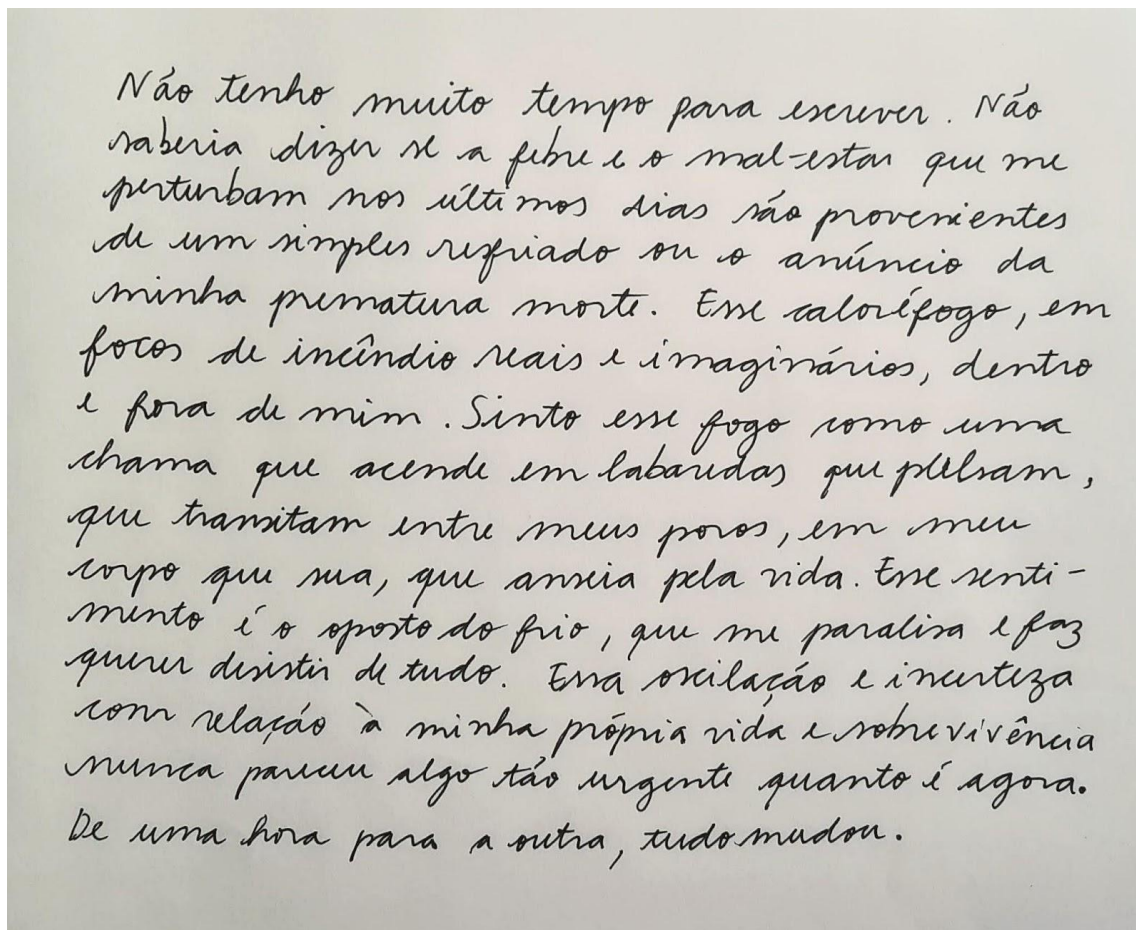 Não tenho muito tempo para escrever. Não
saberia dizer se a febre e o mal-estar que me
perturbam nos últimos dias são provenientes
de um simples resfriado ou o anúncio da
minha prematura morte. Esse calor é fogo, em
focos de incêndio reais e imaginários, dentro
e fora de mim. Sinto esse fogo como uma
chama que acende em labaredas que pulsam,
que transitam entre meus poros, em meu
corpo que sua, que anseia pela vida. Esse senti-
mento é o oposto do frio, que me paralisa e faz
querer desistir de tudo. Essa oscilação e incerteza
com relação à minha própria vida e sobrevivência
nunca pareceu algo tão urgente quanto é agora.
De uma hora para a outra, tudo mudou.